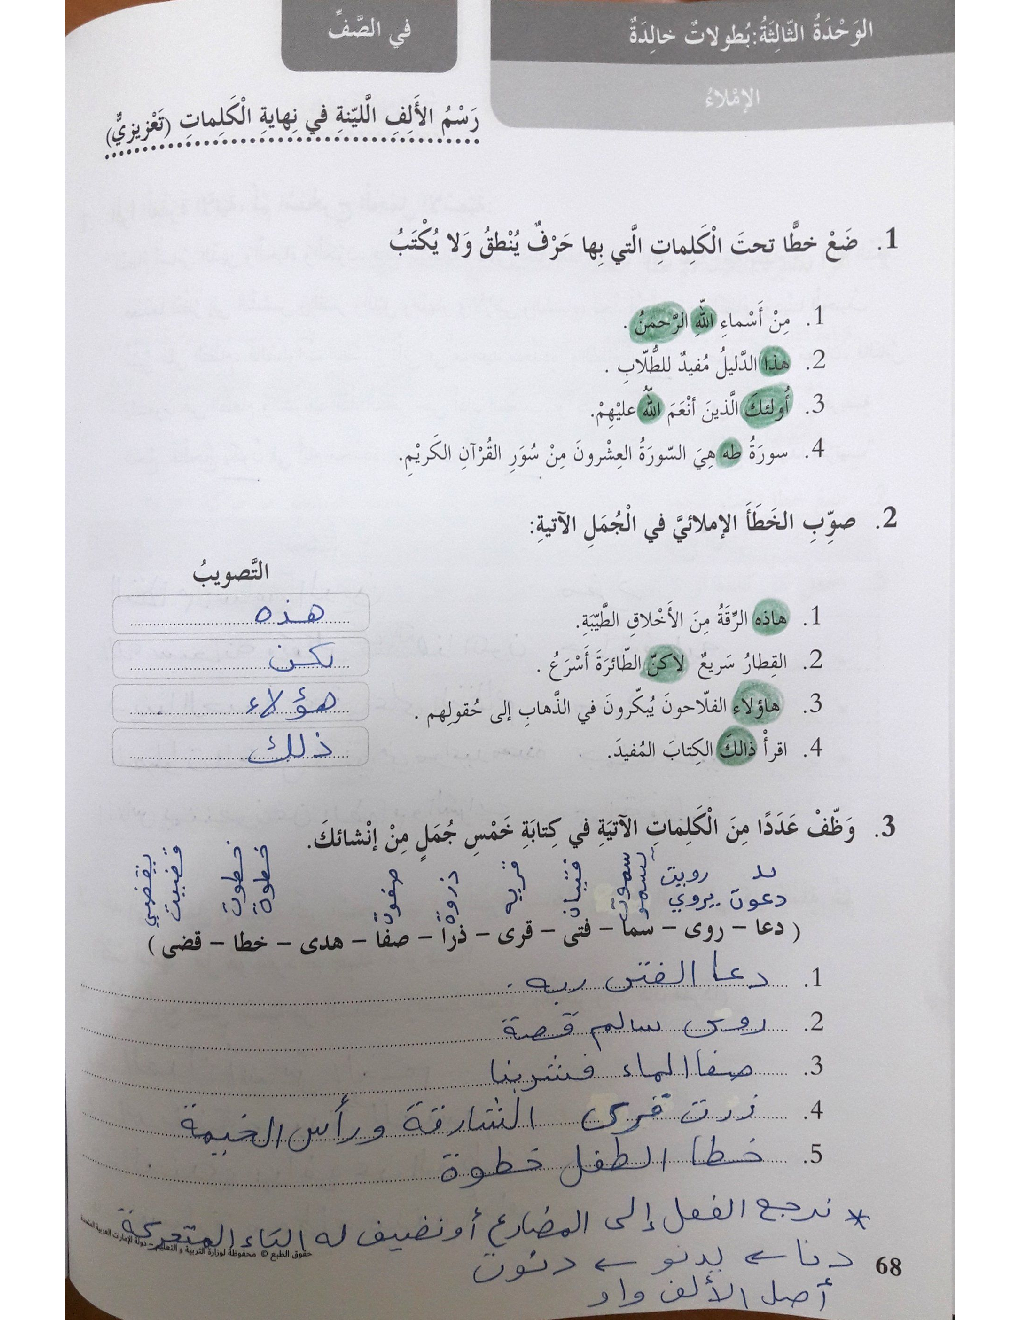 الوَحْدَةُ الثّالِثَةُ: بُطولاتٌ خالِدَةٌ
في الصَّفِّ
الإمْلاءُ
رَسْمُ الأَلِفِ اللَّيّنةِ في نِهايةِ الْكَلِماتِ (تَعْزيزيٌّ)
1. ضَعْ خطًّا تحتَ الْكَلِماتِ الَّتي بِها حَرْفٌ يُنْطقُ وَلا يُكْتَبُ
1. مِنْ أَسْماءِ اللّهِ الرَّحْمنُ .
2. هذا الدَّليلُ مُفيدٌ للطُّلّابِ .
3. أُولئكَ الَّذينَ أنْعَمَ اللّهُ عليْهِمْ.
4. سورَةُ طه هِيَ السّورَةُ العِشْرونَ مِنْ سُوَرِ القُرْآنِ الكَريْمِ.
2. صوِّبِ الخَطَأَ الإملائيَّ في الْجُمَلِ الآتيةِ:
التَّصويبُ
1. هاذه الرِّقَةُ مِنَ الأَخْلاقِ الطَّيّبَةِ. هذه
2. القِطارُ سَريعٌ لاكنّ الطّائرَةَ أسْرَعُ . لكن
3. هاؤلاء الفلّاحونَ يُبكّرونَ في الذَّهابِ إلى حُقولِهم . هؤلاء
4. اقرأْ ذالكَ الكِتابَ المُفيدَ. ذلك
3. وَظّفْ عَدَدًا مِنَ الْكَلِماتِ الآتيَةِ في كِتابَةِ خَمْسِ جُمَلٍ مِنْ إنْشائكَ.
رويت سموت فتيان قريه ذروة صفوت خطوت قضيت
دعوت يروي يسمو خطوة يقضي
( دعا – روى – سما – فتى – قرى – ذرا – صفا – هدى – خطا – قضى )
1. دعا الفتى ربه .
2. روى سالم قصة
3. صفا الماء فشربنا
4. زرت قرى الشارقة ورأس الخيمة
5. خطا الطفل خطوة
* نرجع الفعل إلى المضارع أو نضيف له التاء المتحركة
حقوق الطبع © محفوظة لوزارة التربية و التعليم – دولة الإمارات العربية المتحدة
دنا ← يدنو ← دنوت
أصل الألف واو
68